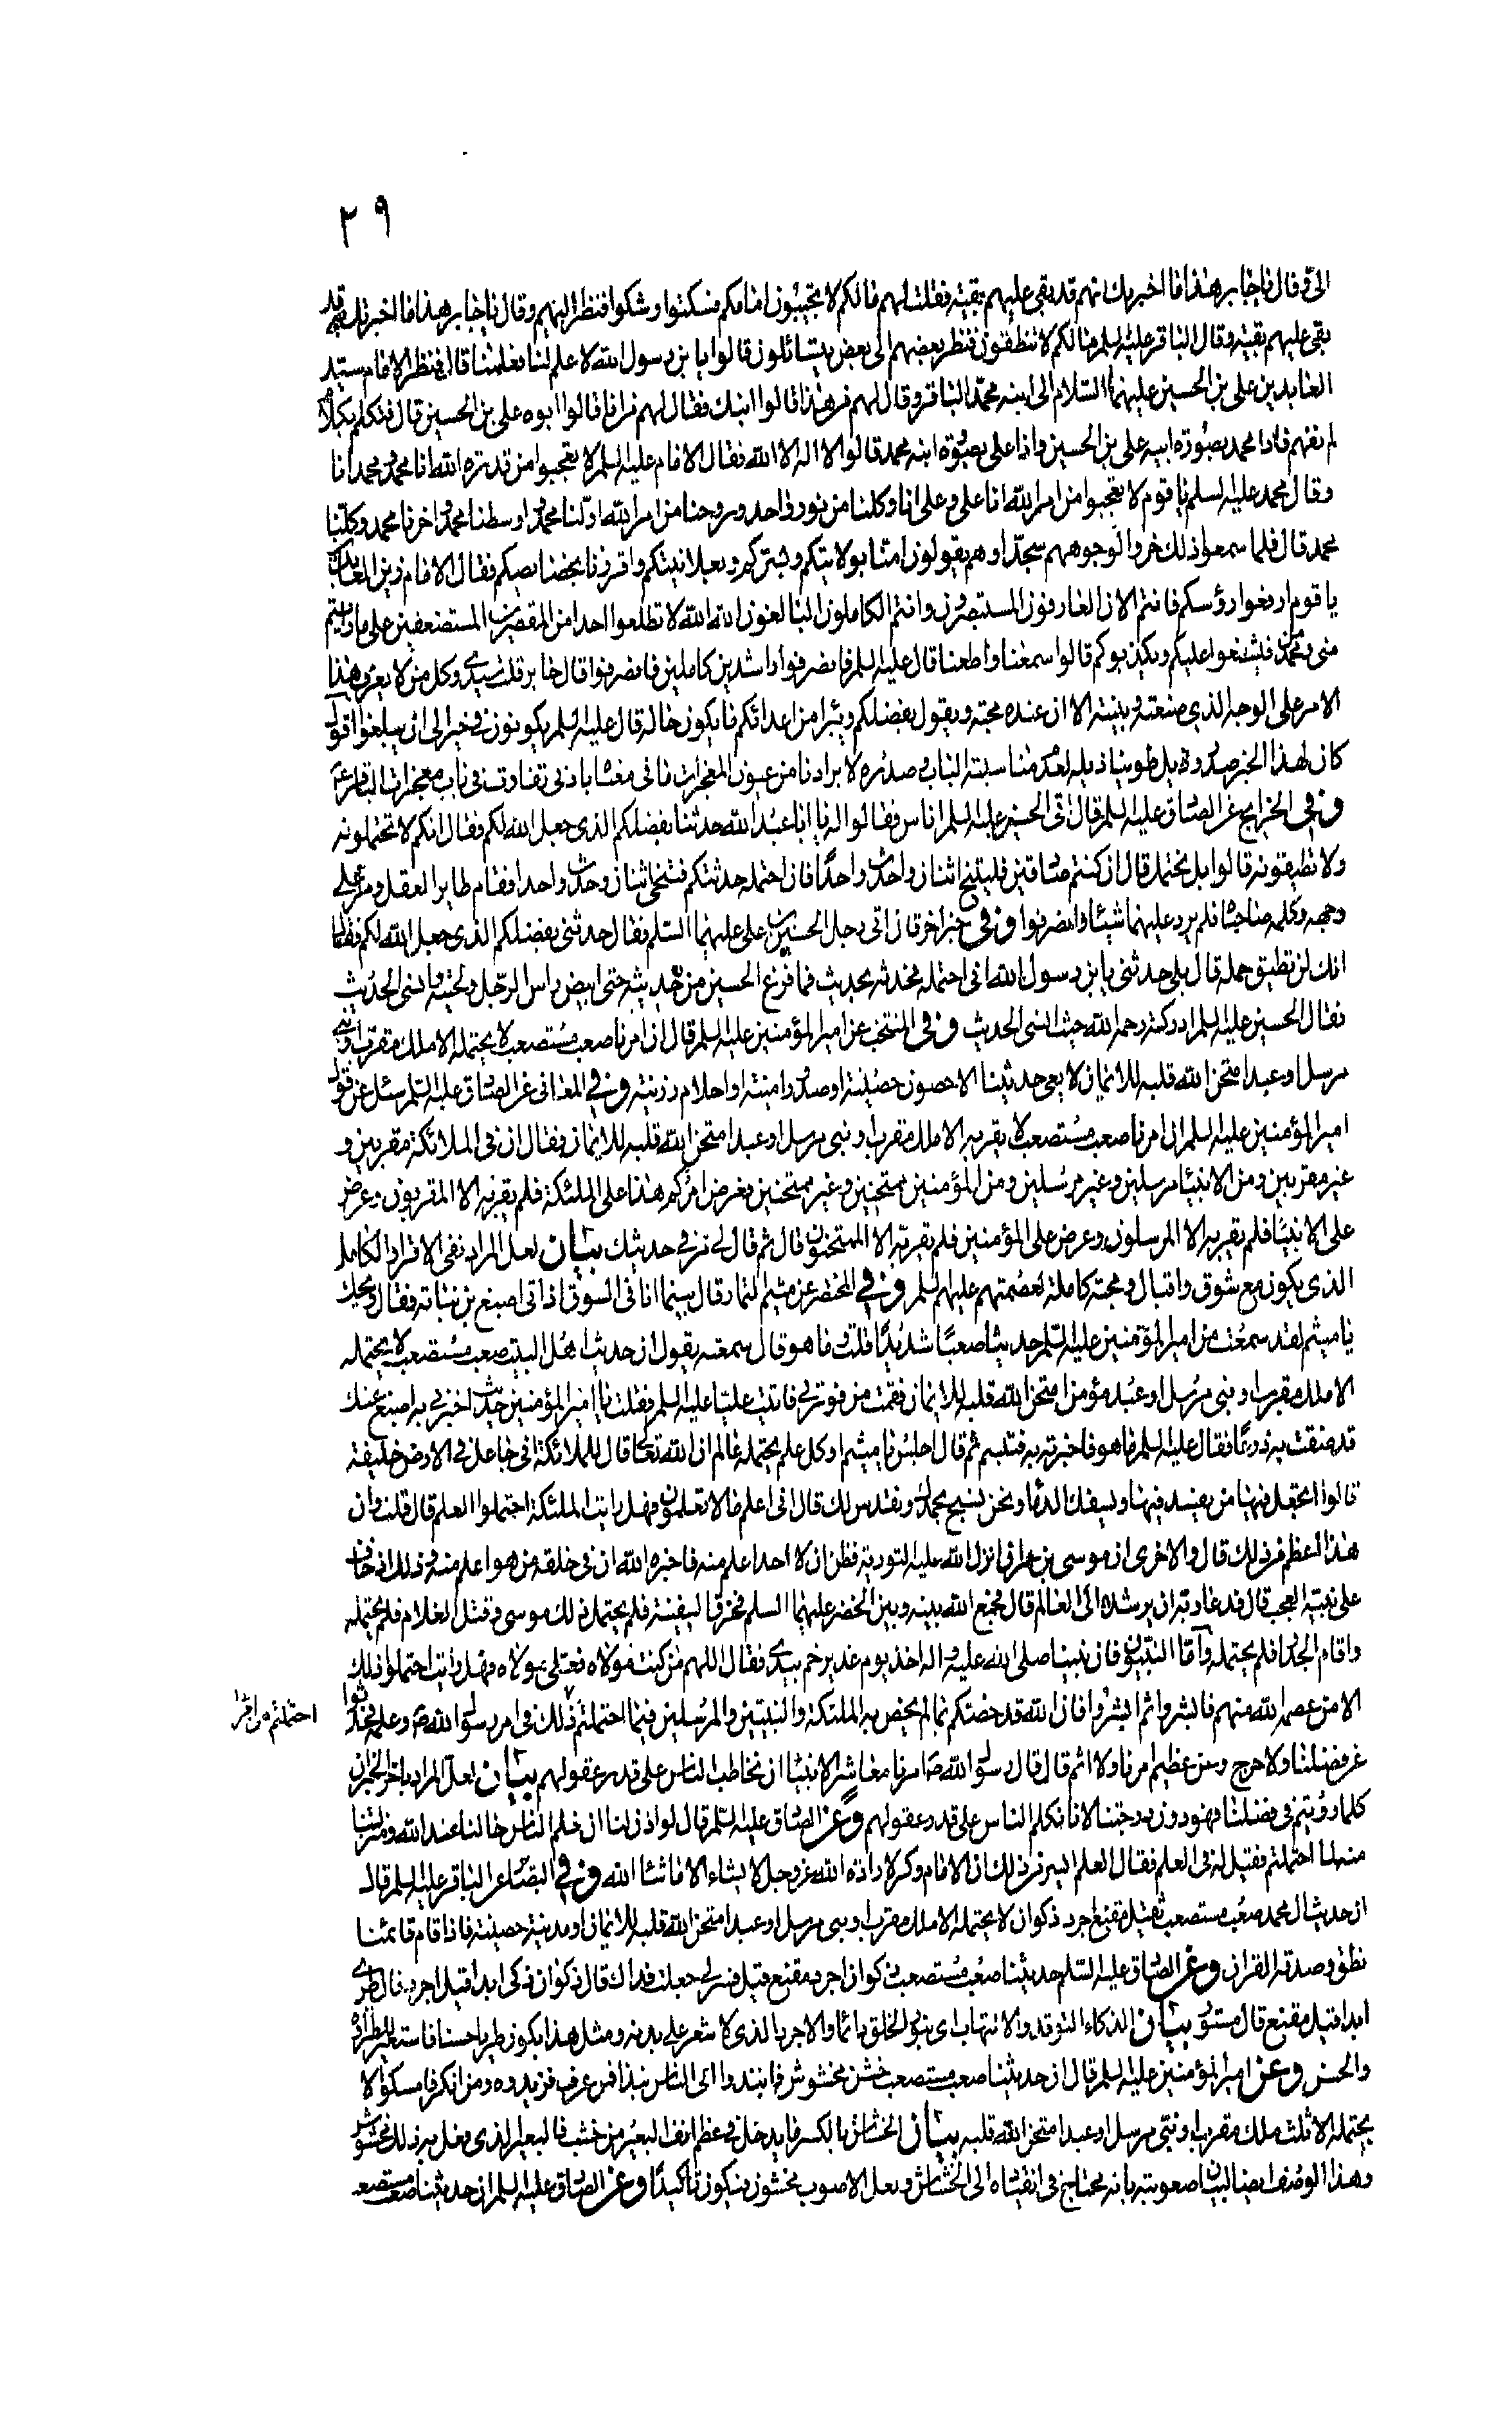 ٢٩
الى وقال يا جابر هذا ما اخبرتك انهم قد بقي عليهم بقية فقلت لهم ما لكم لا تجيبون امامكم فسكتوا وشكوا فنظر اليهم وقال يا جابر هذا ما اخبرتك به قد
بقي عليهم بقية وقال الباقر عليه السلم ما لكم لا تنطقون فنظر بعضهم الى بعض يتسائلون قالوا يا بن رسول الله لا علم لنا فعلمنا قال فنظر الامام سيد
العابدين علي بن الحسين عليهما السلام الى ابنه محمد الباقر وقال لهم من هذا قالوا ابنك فقال لهم من انا قالوا ابوه علي بن الحسين قال فتكلم بكلام
لم نفهم فاذا محمد بصورة ابيه علي بن الحسين واذا علي بصورة ابنه محمد قالوا لا اله الا الله فقال الامام عليه السلم لا تعجبوا من قدرة الله انا محمد ومحمد انا
وقال محمد عليه السلم يا قوم لا تعجبوا من امر الله انا علي وعلي انا وكلنا من نور واحد وروحنا من امر الله اولنا محمد واوسطنا محمد واخرنا محمد وكلنا
محمد قال فلما سمعوا ذلك خروا لوجوههم سجدا وهم يقولون امنا بولايتكم وبسركم وبعلانيتكم واقررنا بخصايصكم فقال الامام زين العابدين
يا قوم ارفعوا رؤسكم فانتم الان العارفون المستبصرون وانتم الكاملون البالغون الله الله لا تطلعوا احدا من المقصرين المستضعفين على ما رايتم
مني ومن محمد فيشنعوا عليكم ويكذبوكم قالوا سمعنا واطعنا قال عليه السلم فانصرفوا راشدين كاملين فانصرفوا قال جابر قلت سيدي وكل من لا يعرف هذا
الامر على الوجه الذي صنعته وبينته الا ان عنده محبة ويقول بفضلكم ويتبرا من اعدائكم ما يكون حاله قال عليه السلم يكونون في خير الى ان يبلغوا اقول
كان لهذا الخبر صدر وذيل طوينا ذيله لعدم مناسبته الباب وصدره لايرادنا من عيون المعجزات ما في معناه بادنى تفاوت في باب معجزات الباقر ع
وفي الخرايج عن الصادق عليه السلم قال اتى الحسين عليه السلم اناس فقالوا له يا ابا عبد الله حدثنا بفضلكم الذي جعل الله لكم فقال انكم لا تحتملونه
ولا تطيقونه قالوا بل نحتمل قال ان كنتم صادقين فليتنح اثنان واحدث واحدًا فان احتمله حدثتكم فتنحى اثنان وحدث واحدا فقام طاير العقل ومر على
وجهه وكلمه صاحباه فلم يرد عليهما شيئا وانصرفوا وفي خبر اخر قال اتى رجل الحسين بن علي عليهما السلم فقال حدثني بفضلكم الذي جعل الله لكم فقال
انك لن تطيق حمله قال بلى حدثني يا بن رسول الله اني احتمله فحدثه بحديث فما فرغ الحسين من حديثه حتى ابيض راس الرجل ولحيته وانسي الحديث
فقال الحسين عليه السلم ادركته رحمه الله حيث انسي الحديث وفي المنتخب عن امير المؤمنين عليه السلم قال ان امرنا صعب مستصعب لا يحتمله الا ملك مقرب او نبي
مرسل او عبد امتحن الله قلبه للايمان لا يعي حديثنا الا حصون حصينة او صدور امينة او احلام رزينة وفي المعاني عن الصادق عليه السلم سئل عن قول
امير المؤمنين عليه السلم ان امرنا صعب مستصعب لا يقر به الا ملك مقرب او نبي مرسل او عبد امتحن الله قلبه للايمان فقال ان في الملائكة مقربين و
غير مقربين ومن الانبياء مرسلين وغير مرسلين ومن المؤمنين ممتحنين وغير ممتحنين فعرض امركم هذا على الملئكة فلم يقر به الا المقربون وعرض
على الانبياء فلم يقر به الا المرسلون وعرض على المؤمنين فلم يقر به الا الممتحنون قال ثم قال لي مر في حديثك بيان لعل المراد نفي الاقرار الكامل
الذي يكون مع شوق واقبال ومحبة كاملة لعصمتهم عليهم السلم وفي المختصر عن ميثم التمار قال بينما انا في السوق اذ اتى اصبغ بن نباتة فقال ويحك
يا ميثم لقد سمعت من امير المؤمنين عليه السلم حديثا صعبًا شديدًا قلت وما هو قال سمعته يقول ان حديث اهل البيت صعب مستصعب لا يحتمله
الا ملك مقرب او نبي مرسل او عبد مؤمن امتحن الله قلبه للايمان فقمت من فورتي فاتيت عليا عليه السلم فقلت يا امير المؤمنين حديث اخبرني به اصبغ عنك
قد ضقت به ذرعًا فقال عليه السلم ما هو فاخبرته به فتبسم ثم قال اجلس يا ميثم او كل علم يحتمله عالم ان الله تعالى قال للملائكة اني جاعل في الارض خليفة
قالوا اتجعل فيها من يفسد فيها ويسفك الدماء ونحن نسبح بحمدك ونقدس لك قال اني اعلم ما لا تعلمون فهل رايت الملئكة احتملوا العلم قال قلت وان
هذا اعظم من ذلك قال والاخرى ان موسى بن عمران انزل الله عليه التورية فظن ان لا احد اعلم منه فاخبره الله ان في خلقه من هو اعلم منه وذلك اذ خاف
على نبيه العجب قال فدعا ربه ان يرشده الى العالم قال فجمع الله بينه وبين الخضر عليهما السلم فخرق السفينة فلم يحتمل ذلك موسى وقتل الغلام فلم يحتمله
واقام الجدار فلم يحتمله واما النبيون فان نبينا صلى الله عليه واله اخذ يوم غدير خم بيدي فقال اللهم من كنت مولاه فعلي مولاه فهل رايت احتملوا ذلك
الا من عصمه الله منهم فابشروا ثم ابشروا فان الله قد خصكم بما لم يخص به الملئكة والنبيين والمرسلين فيما احتملتم ذلك في امر رسول الله ص وعلمه فحدثوا
احتملتم من امر
عن فضلنا ولا حرج وعن عظيم امرنا ولا اثم قال قال رسول الله ص امرنا معاشر الانبياء ان نخاطب الناس على قدر عقولهم بيان لعل المراد باخر الخبر ان
كلما رويتم في فضلنا فهو دون درجتنا لانا نكلم الناس على قدر عقولهم وعن الصادق عليه السلم قال لو اذن لنا ان نعلم الناس حالنا عند الله ومنزلتنا
منه لما احتملتم فقيل له في العلم فقال العلم ايسر من ذلك ان الامام وكر لارادة الله عز وجل لا يشاء الا ما شاء الله وفي البصائر عن الباقر عليه السلم قال
ان حديث ال محمد صعب مستصعب ثقيل مقنع اجرد ذكوان لا يحتمله الا ملك مقرب او نبي مرسل او عبد امتحن الله قلبه للايمان او مدينة حصينة فاذا قام قائمنا
نطق وصدقه القران وعن الصادق عليه السلم حديثنا صعب مستصعب ذكوان اجرد مقنع قيل فسر لي جعلت فداك قال ذكوان ذكي ابدا قيل اجرد قال طري
ابدا قيل مقنع قال مستور بيان الذكاء التوقد والالتهاب اي ينور الخلق دائما والاجرد الذي لا شعر على بدنه ومثل هذا يكون طريا حسنا فاستعير للطراوة
والحسن وعن امير المؤمنين عليه السلم قال ان حديثنا صعب مستصعب خشن مخشوش فانبذوا الى الناس نبذا فمن عرف فزيدوه ومن انكر فامسكوا لا
يحتمله الا ثلث ملك مقرب او نبي مرسل او عبد امتحن الله قلبه بيان الخشاش بالكسر ما يدخل في عظم انف البعير من خشب فالبعير الذي فعل به ذلك مخشوش
وهذا الوصف ايضا لبيان صعوبته بانه محتاج في انقياده الى الخشاش ولعل الاصوب مخشوشن فيكون تاكيدًا وعن الصادق عليه السلم ان حديثنا صعب مستصعب